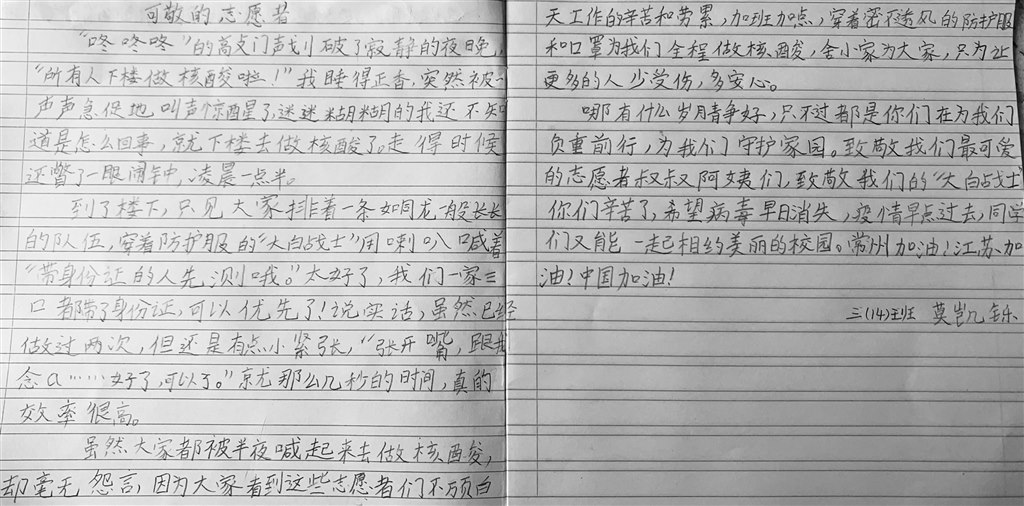 可敬的志愿者
“咚咚咚”的敲门声划破了寂静的夜晚，
“所有人下楼做核酸啦！”我睡得正香，突然被一
声声急促地叫声惊醒了，迷迷糊糊的我还不知
道是怎么回事，就下楼去做核酸了。走得时候
还瞥了一眼闹钟，凌晨一点半。
到了楼下，只见大家排着一条如同龙一般长长
的队伍，穿着防护服的“大白战士”用喇叭喊着
“带身份证的人先测哦。”太好了，我们一家三
口都带了身份证，可以优先了！说实话，虽然已经
做过两次，但还是有点小紧张，“张开嘴，跟我
念a……好了，可以了。”就那么几秒的时间，真的
效率很高。
虽然大家都被半夜喊起来去做核酸，
却毫无怨言，因为大家看到这些志愿者们不顾白
天工作的辛苦和劳累，加班加点，穿着密不透风的防护服
和口罩为我们全程做核酸，舍小家为大家，只为让
更多的人少受伤，多安心。
哪有什么岁月静好，只不过都是你们在为我们
负重前行，为我们守护家园。致敬我们最可爱
的志愿者叔叔阿姨们，致敬我们的“大白战士”
你们辛苦了，希望病毒早日消失，疫情早点过去，同学
们又能一起相约美丽的校园。常州加油！江苏加
油！中国加油！
三（14）班 莫凯铄